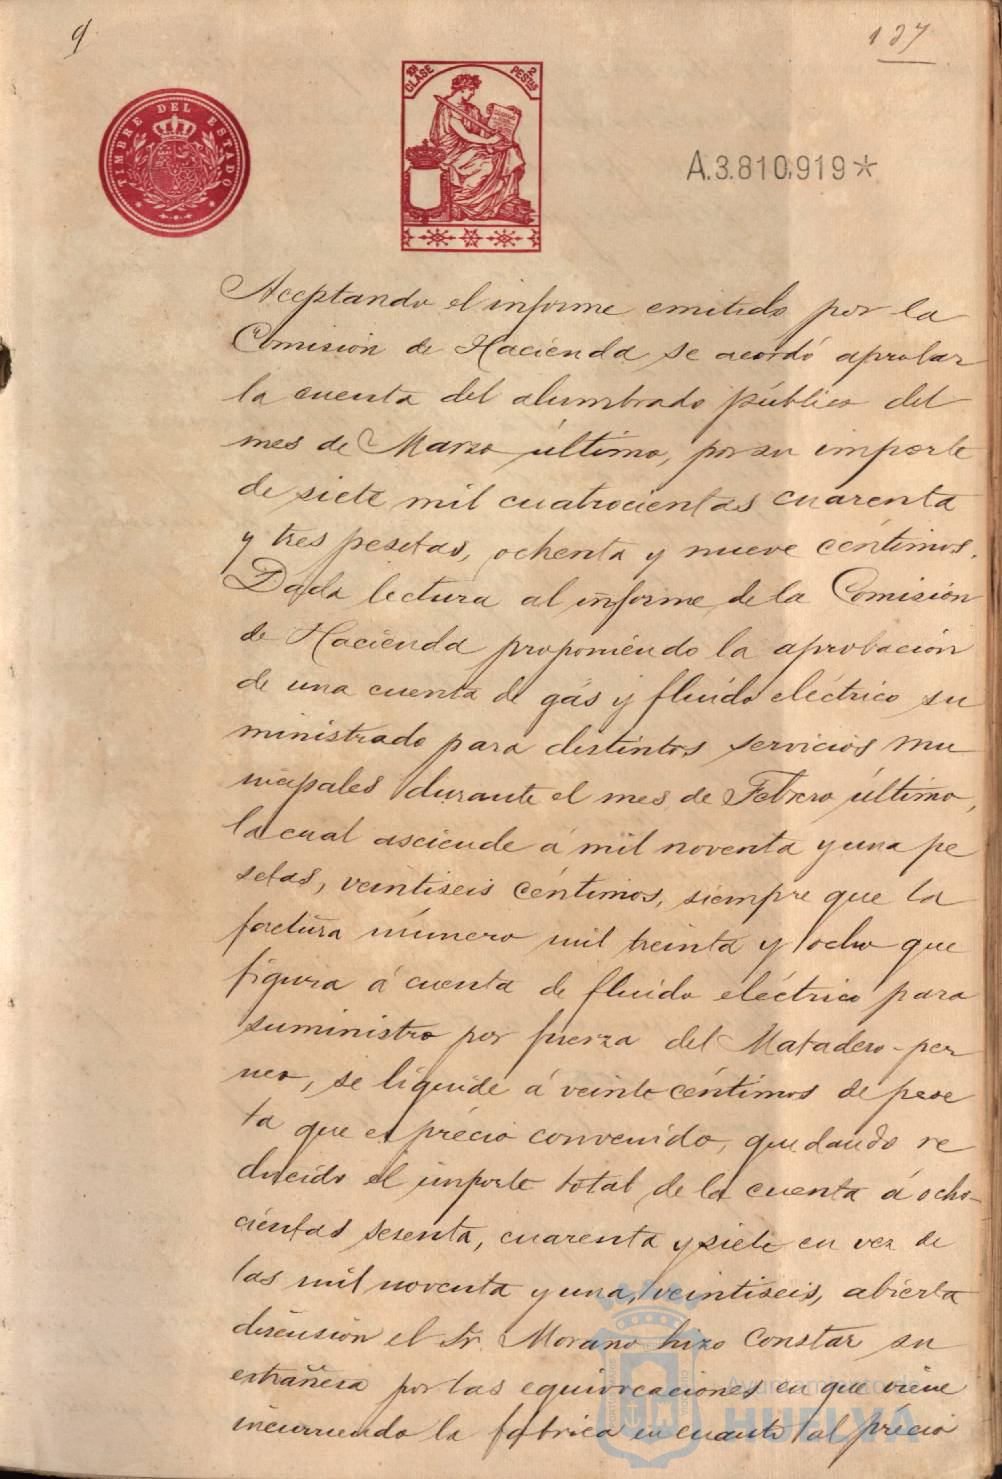 9
137
TIMBRE DEL ESTADO
10ª CLASE 2 PESTAS
A.3.810,919*
Aceptando el informe emitido por la
Comisión de Hacienda se acordó aprobar
la cuenta del alumbrado público del
mes de Marzo último, por su importe
de siete mil cuatrocientas cuarenta
y tres pesetas, ochenta y nueve céntimos.
Dada lectura al informe de la Comisión
de Hacienda proponiendo la aprobación
de una cuenta de gás y fluido eléctrico su
ministrado para distintos servicios mu
nicipales durante el mes de Febrero último,
la cual asciende á mil noventa y una pe
setas, veintiseis céntimos, siempre que la
factura número mil treinta y ocho que
figura á cuenta de fluido eléctrico para
suministro por fuerza del Matadero-per
neo, se liquide á veinte céntimos de pese
ta que es précio convenido, quedando re
ducido el importe total de la cuenta á ocho-
cientas sesenta, cuarenta y siete en vez de
las mil noventa y una, veintiseis, abierta
discusión el Sr. Morano hizo constar su
estrañesa por las equivocaciones en que viene
incurriendo la fabrica en cuanto al précio
Ayuntamiento de
HUELVA